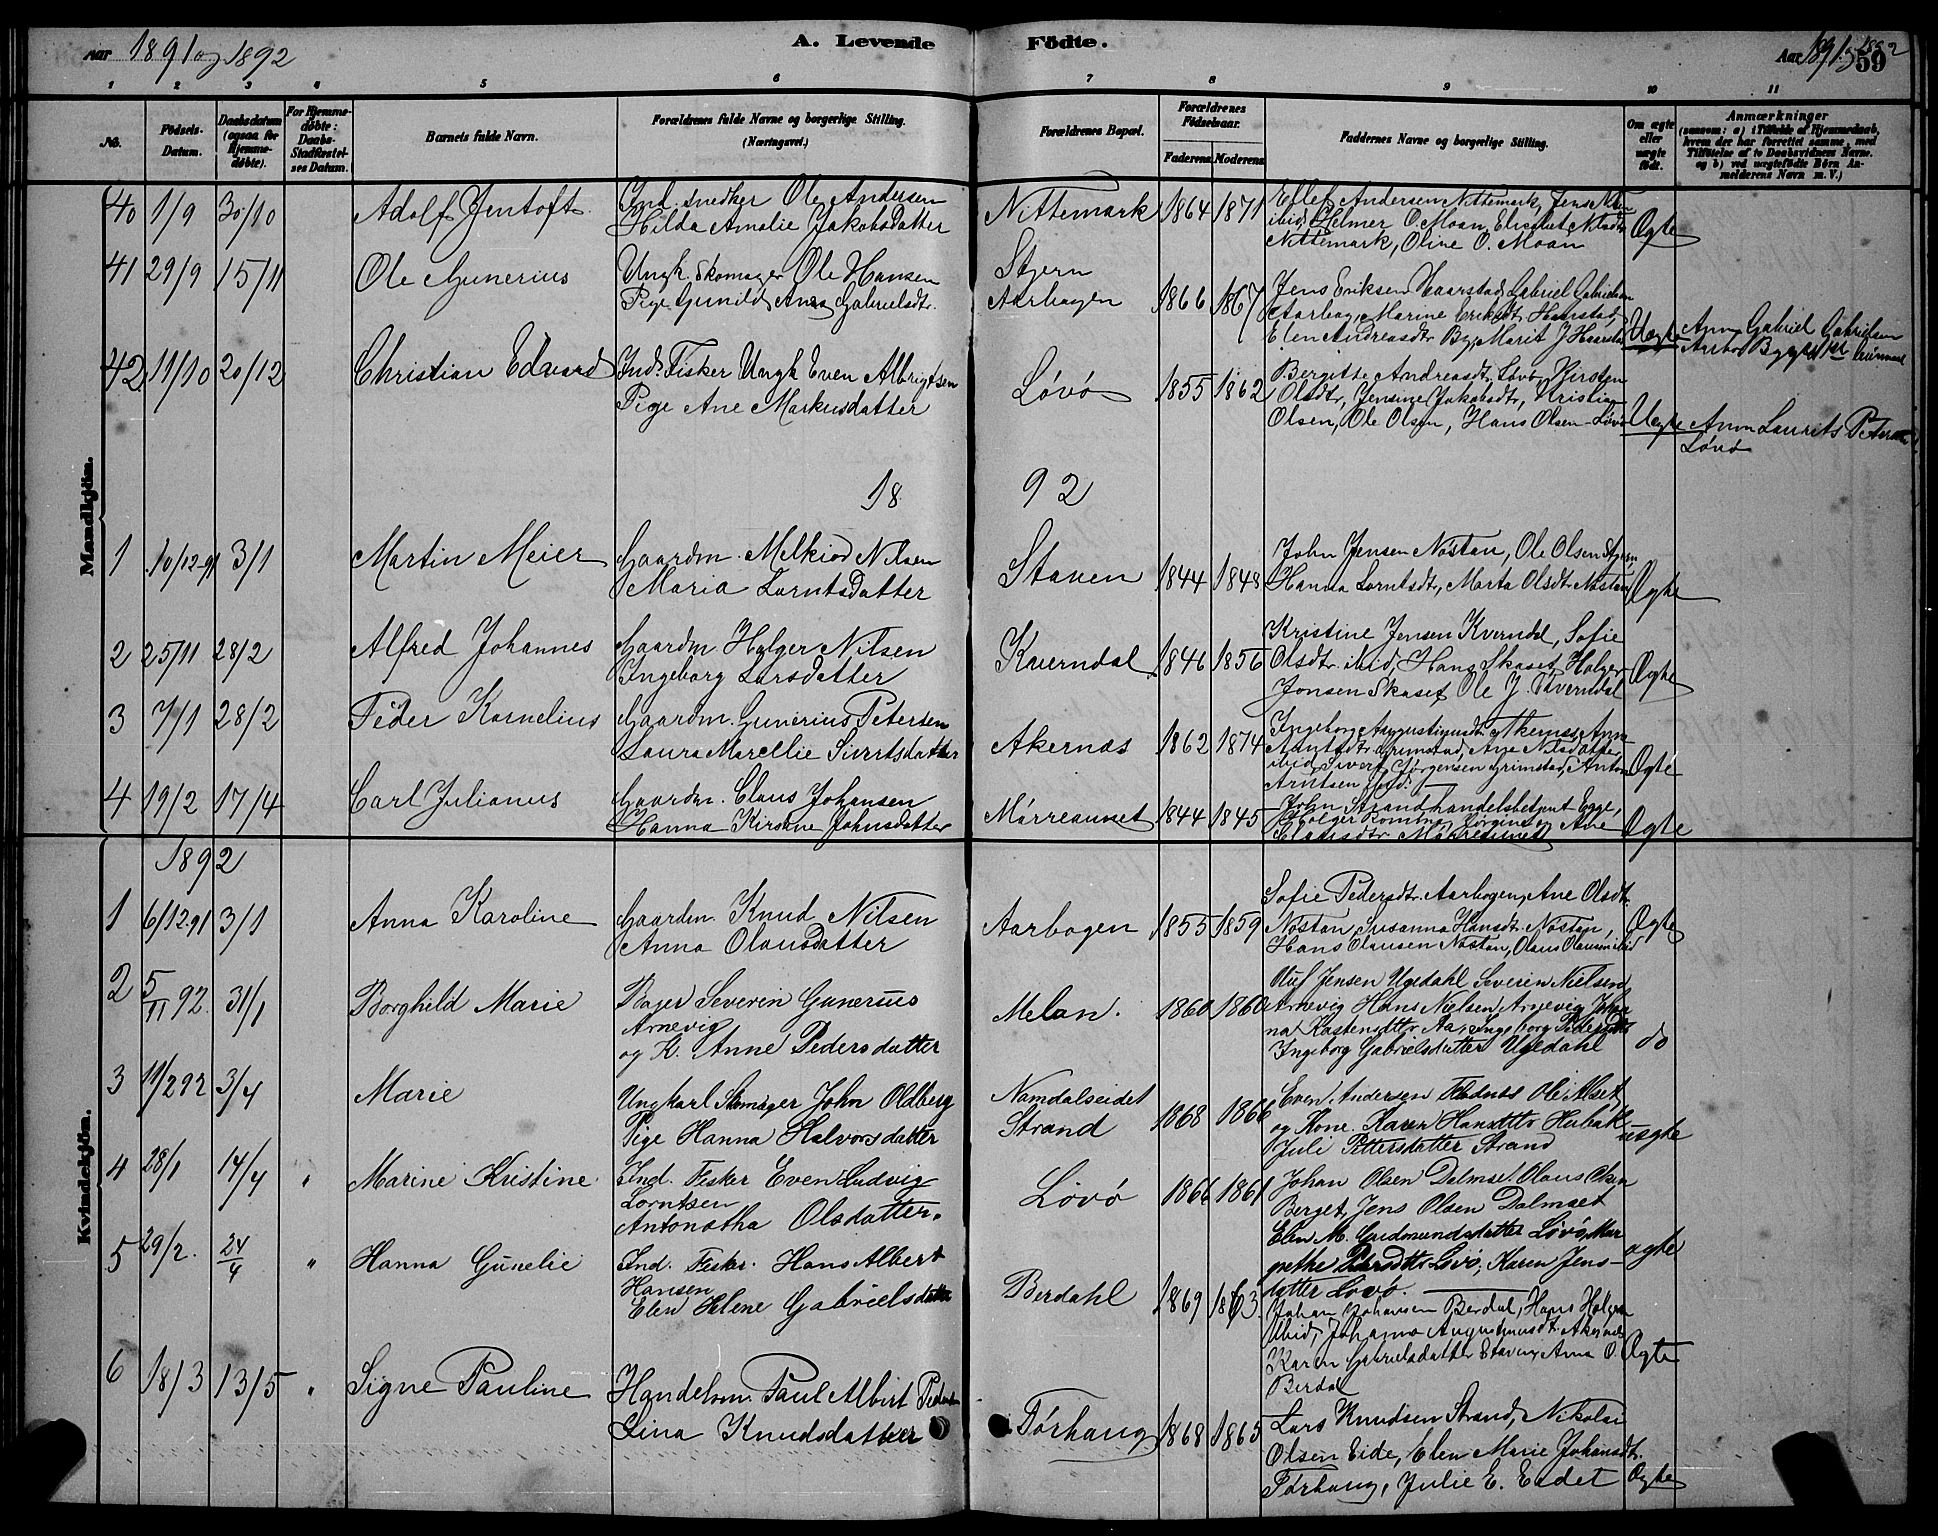 Aar 1891 og 1892
A. Levende Födte.
Aar 1891 og 1892
59
1 2 3 4 5 6 7 8 9 10 11
No.
Födsels-Datum.
Daabsdatum (ogsaa for Hjemme-døbte).
For Hjemme-døbte: Daabs-Stadfæstel-ses Datum.
Barnets fulde Navn.
Forældrenes fulde Navne og borgerlige Stilling. (Næringsvei.)
Forældrenes Bopæl.
Forældrenes Födselsaar.
Faderens. Moderens.
Faddernes Navne og borgerlige Stilling.
Om ægte eller uægte født.
Anmærkninger
(saasom: a) i Tilfælde af Hjemmedaab, hvem der har forrettet samme, med Tilföielse af to Daabsvidners Navne. og b) ved uægtefödte Börn An-melderens Navn m. V.)
Mandkjön.
40 1/9 30/10 Adolf Jentoft
Ind. snedker Ole Andersen
Hilda Amalie Jakobsdatter
Nittemark 1864 1871
Ellef Andersen Nittemark, Jens
ibid, Helmer O. Moan, Elisabet
Nittemark, Oline O. Moan
Ægte
41 29/9 15/11 Ole Gunerius
Ungk. Skomager Ole Hansen
Pige Gunild Anna Gabrielsdt.
Stjern
Aarbogen 1866 1867
Jens Eriksen Haarstad, Gabriel Gabrielsen
Aarbog, Marine Eriksdt. Haarstad,
Elen Andreasdtr By, Marit J Haarstad
Uægte Anm Gabriel Gabrielsen
42 11/10 20/12 Christian Edvard
Ind. Fisker Ungk Even Albrigtsen
Pige Ane Markusdatter
Løvø 1855 1862
Bergitte Andreasdt. Løvø, Kjersten
Olsdtr, Jensine Jakobsdt, Kristian
Olsen, Ole Olsen, Hans Olsen Løvø
Uægte Anm Laurits Petersen
Løvø
18 92
1 10/12-91 3/1 Martin Meier
Gaardm. Melkior Nilsen
Maria Lorntsdatter
Staven 1844 1848
John Jensen Nøstan, Ole Olsen Stjern
Hanna Lorntsdt, Marta Olsdt. Nøstan
Ægte
2 25/11 28/2 Alfred Johannes
Gaardm Holger Nilsen
Ingeborg Larsdatter
Kverndal 1846 1856
Kristine Jensen Kverndal, Sofie
Olsdtr. ibid, Hans Skaset, Holger
Jonsen Skaset Ole J. Kverndal
Ægte
3 7/1 28/2 Peder Kornelius
Gaardm. Gunerius Petersen
Laura Marellie Sivertsdatter
Akernæs 1862 1874
Ingeborg Augustinusdt. Akernæs, Anna
Arntsdt. Grimstad, Ane Nilsdatter
ibid, Sivert Jørgensen Grimstad, Anton
Arntsen ibid.
Ægte
4 19/2 17/4 Carl Julianus
Gaardm. Claus Johansen
Hanna Kirstine Johnsdatter
Mørreaunet 1844 1845
John Strand handelsbetjent Egge,
Ægte
Kvindekjön.
1892
1 6/12-91 3/1 Anna Karoline
Gaardm. Knud Nilsen
Anna Olausdatter
Aarbogen 1855 1859
Sofie Pedersdt. Aarbogen, Ane Olsdt.
Nøstan, Susanna Hansdt. Nøstan,
Hans Olausen Nøstan, Olaus Olausen ibid
Ægte
2 5/11 92. 31/1 Borghild Marie
Bager Severin Gunerius
Arnevig
og K. Anne Pedersdatter
Melan. 1860 1860
Oluf Jensen Ugedahl Severin Nielsen
Arnevig Hans Nielsen Arnevig Johan
na Kastensdttr Aa, Ingeborg Pedersdttr
Ingeborg Gabrielsdatter Ugedahl
do
3 11/2 92 3/4 Marie
Ungkarl Skomager John Oldberg
Pige Hanna Halvorsdatter
Namdalseidet
Strand 1868 1866
Even Andersen Ole Alset
og Kone. Karen Hansdttr Hubak
Juli Pettersdatter Strand
uægte
4 28/1 14/4 " Marine Kristine
Ind. Fisker Even Ludvig
Lorntsen
Antonetha Olsdatter.
Løvø 1866 1861
Johan Olsen Dalmset. Olaus Olsen
Berget, Jens Olsen Dalmset
Elen M. Gudmundsdatter Løvø, Mar
grethe Løvø, Karen Jens-
datter Løvø.
ægte
5 29/2. 24/4 " Hanna Gunelie
Ind. Fisker. Hans Albert
Hansen
Elen Helene Gabrielsdatter
Berdahl 1869 1863.
Johan Johansen Berdal, Hans Holgersen
ibid, Johanna Augustinusdt. Akernæs
Karen Gabrielsdatter Staven, Anna O.
Berdal
Ægte
6 18/3 13/5 " Signe Pauline
Handelsm. Paul Albert Pedersen
Lina Knudsdatter
Tørhaug 1868 1865
Lars Knudsen Strand, Nikolai
Olsen Eide, Elen Marie Johansdt.
Tørhaug, Julie E. Eidet
Ægte